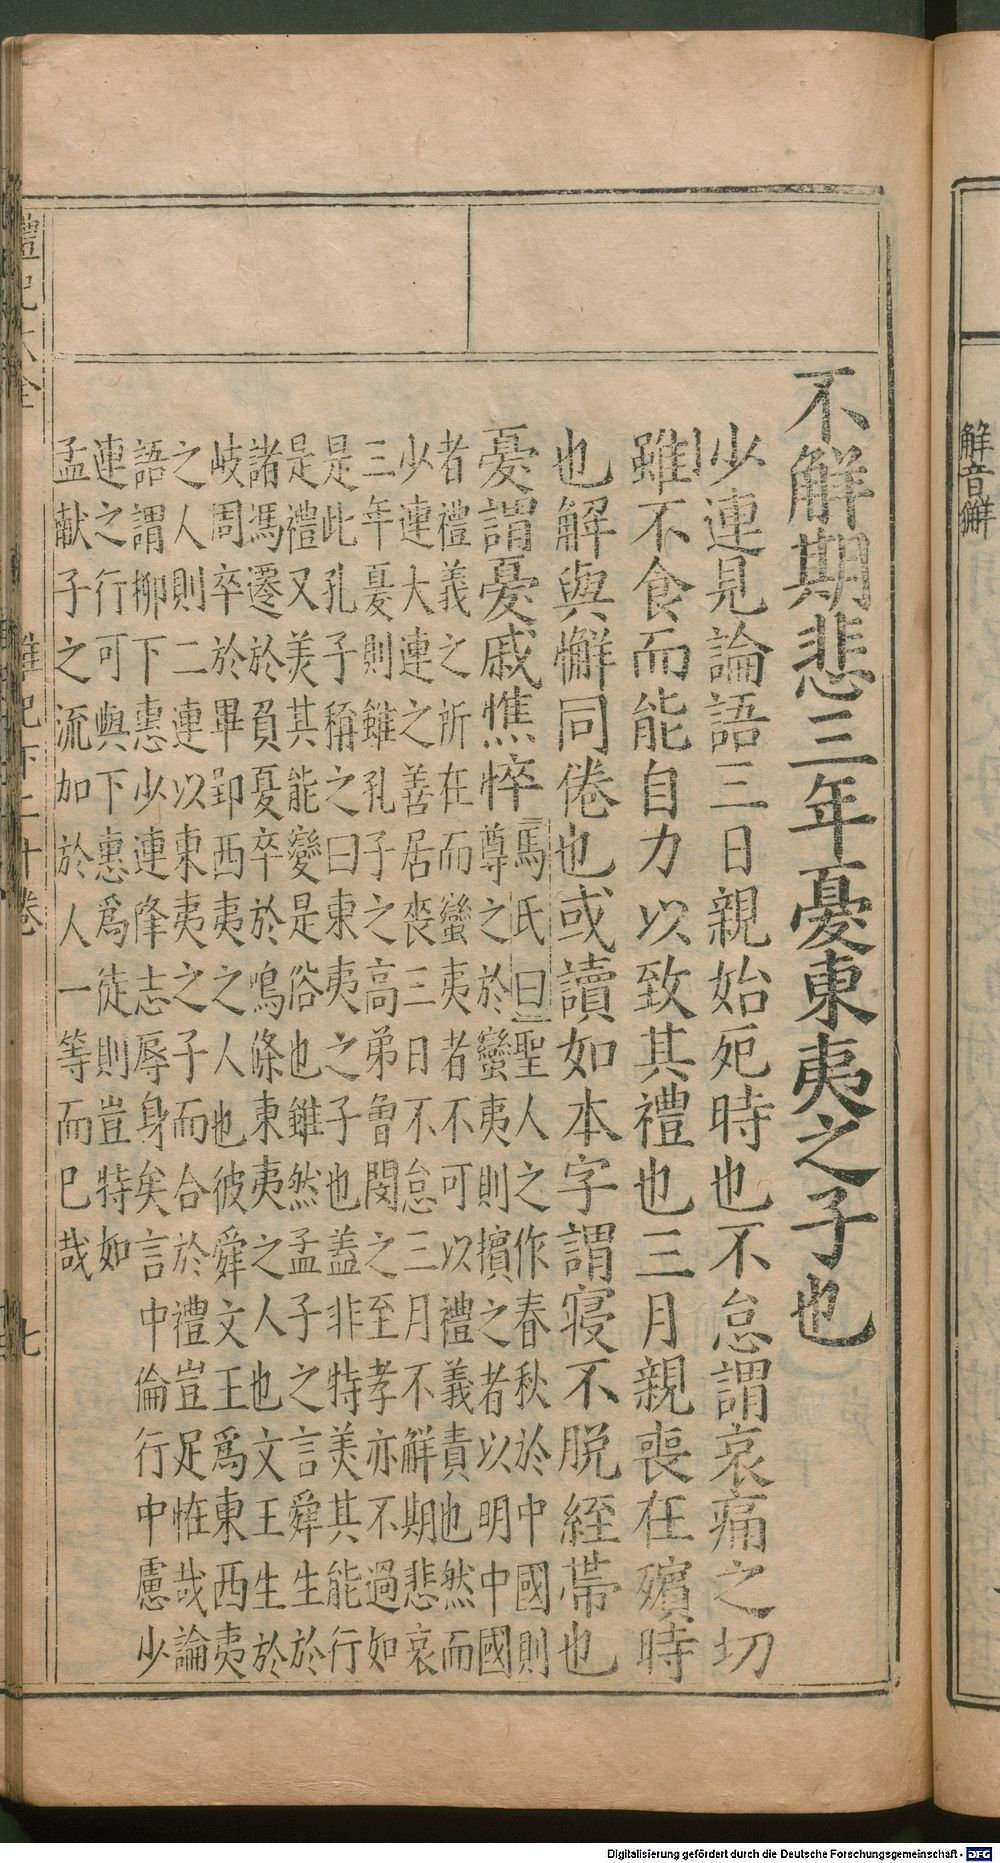 解音獬
不解期悲三年憂東夷之子也
少連見論語三日親始死時也不怠謂哀痛之切
雖不食而能自力以致其禮也三月親喪在殯時
也解與懈同倦也或讀如本字謂寢不脫絰帶也
憂謂憂戚憔悴
馬氏曰聖人之作春秋於中國則
尊之於蠻夷則擯之者以明中國
者禮義之所在而蠻夷者不可以禮義責也然而
少連大連之善居喪三日不怠三月不解期悲哀
三年憂則雖孔子之高弟魯閔之至孝亦不過如
是此孔子稱之曰東夷之子也蓋非特美其能行
是禮又美其能變是俗也雖然孟子之言舜生於
諸馮遷於負夏卒於鳴條東夷之人也文王生於
岐周卒於畢郢西夷之人也彼舜文王爲東西夷
之人則二連以東夷之子而合於禮豈足恠哉論
語謂柳下惠少連降志辱身矣言中倫行中慮少
連之行可與下惠爲徒則豈特如
孟献子之流加於人一等而巳哉
禮記大全
雜記下二十卷
七
Digitalisierung gefördert durch die Deutsche Forschungsgemeinschaft - DFG